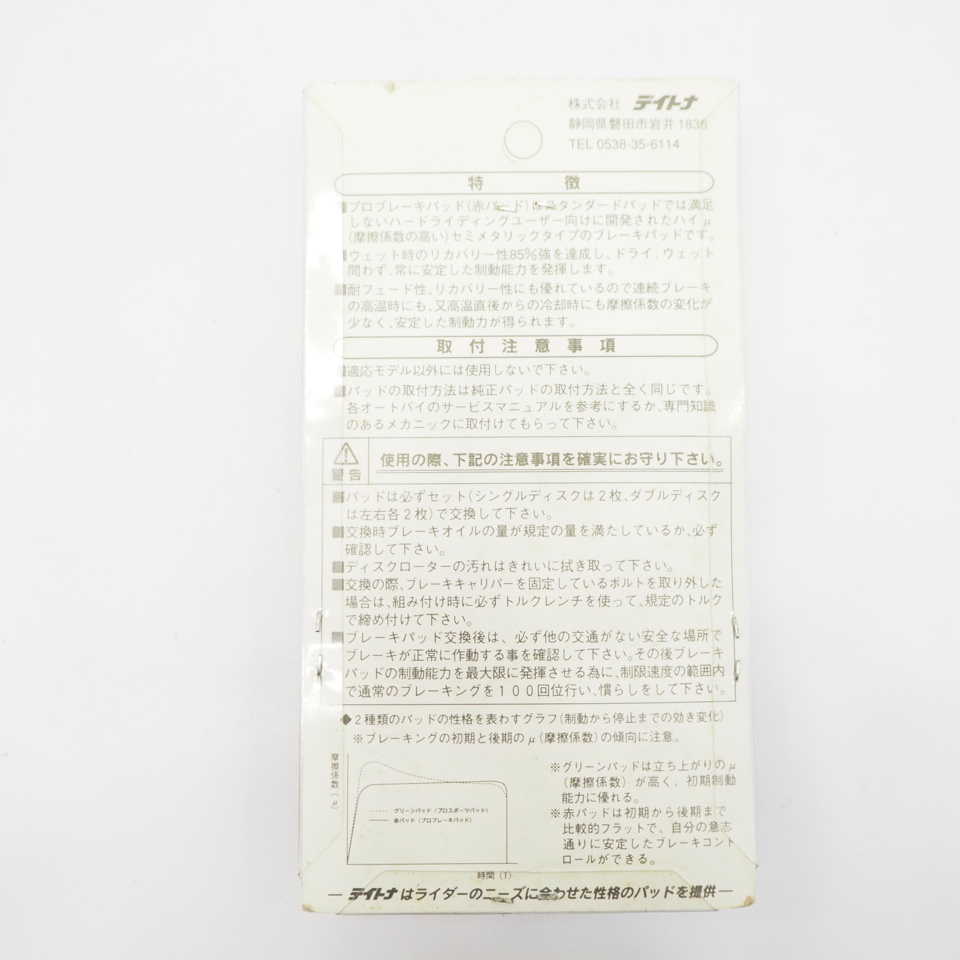 株式会社 デイトナ
静岡県磐田市岩井1836
TEL 0538-35-6114
特 徴
■プロブレーキパッド(赤パッド)はスタンダードパッドでは満足
しないハードライディングユーザー向けに開発されたハイμ
(摩擦係数の高い)セミメタリックタイプのブレーキパッドです。
■ウェット時のリカバリー性85%強を達成し、ドライ、ウェット
問わず、常に安定した制動能力を発揮します。
■耐フェード性、リカバリー性にも優れているので連続ブレーキ
の高温時にも、又高温直後からの冷却時にも摩擦係数の変化が
少なく、安定した制動力が得られます。
取付注意事項
■適応モデル以外には使用しないで下さい。
■パッドの取付方法は純正パッドの取付方法と全く同じです。
各オートバイのサービスマニュアルを参考にするか、専門知識
のあるメカニックに取付けてもらって下さい。
警告
使用の際、下記の注意事項を確実にお守り下さい。
■パッドは必ずセット(シングルディスクは2枚、ダブルディスク
は左右各2枚)で交換して下さい。
■交換時ブレーキオイルの量が規定の量を満たしているか、必ず
確認して下さい。
■ディスクローターの汚れはきれいに拭き取って下さい。
■交換の際、ブレーキキャリパーを固定しているボルトを取り外した
場合は、組み付け時に必ずトルクレンチを使って、規定のトルク
で締め付けて下さい。
■ブレーキパッド交換後は、必ず他の交通がない安全な場所で
ブレーキが正常に作動する事を確認して下さい。その後ブレーキ
パッドの制動能力を最大限に発揮させる為に、制限速度の範囲内
で通常のブレーキングを100回位行い、慣らしをして下さい。
◆2種類のパッドの性格を表わすグラフ(制動から停止までの効き変化)
※ブレーキングの初期と後期のμ(摩擦係数)の傾向に注意。
摩擦係数(μ)
グリーンパッド(プロスポーツパッド)
赤パッド(プロブレーキパッド)
時間(T)
※グリーンパッドは立ち上がりのμ
(摩擦係数)が高く、初期制動
能力に優れる。
※赤パッドは初期から後期まで
比較的フラットで、自分の意志
通りに安定したブレーキコント
ロールができる。
—デイトナはライダーのニーズに合わせた性格のパッドを提供—